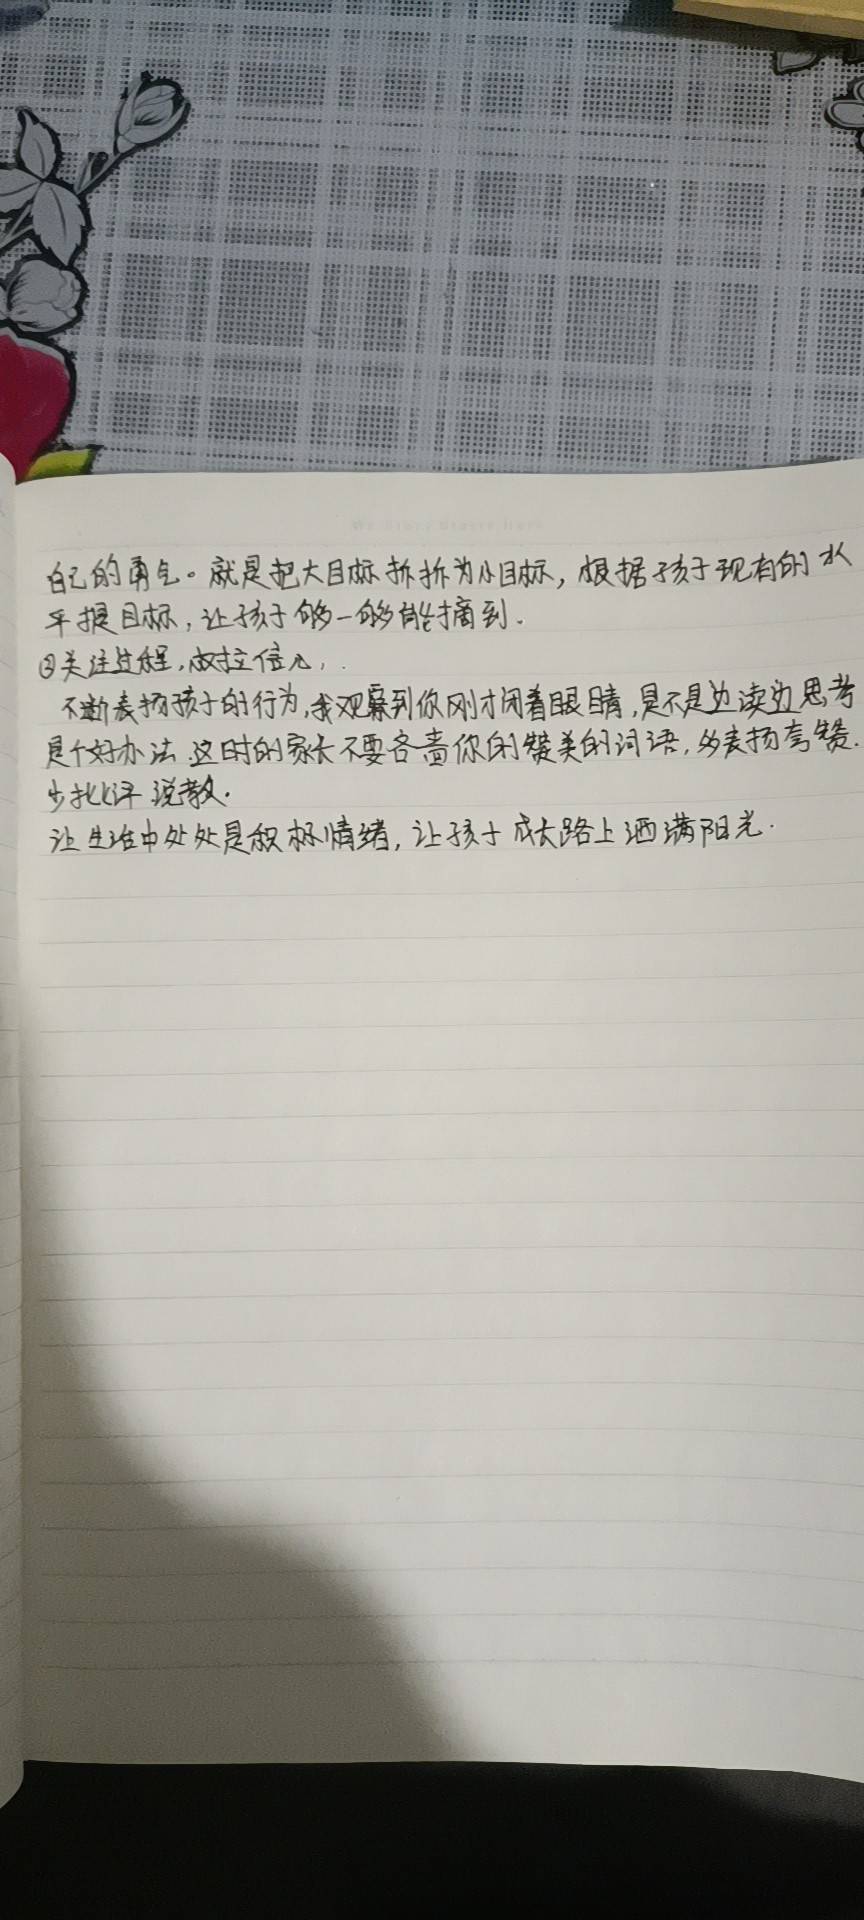 自己的勇气。就是把大目标拆拆为小目标，根据孩子现有的水
平提目标，让孩子够一够能摘到.
②关注过程,放拉信心,.
不断表扬孩子的行为,我观察到你刚才闭着眼睛,是不是边读边思考
是个好办法.这时的家长不要吝啬你的赞美的词语,多表扬夸赞.
少批评说教.
让生活中处处是积极情绪,让孩子成长路上洒满阳光.